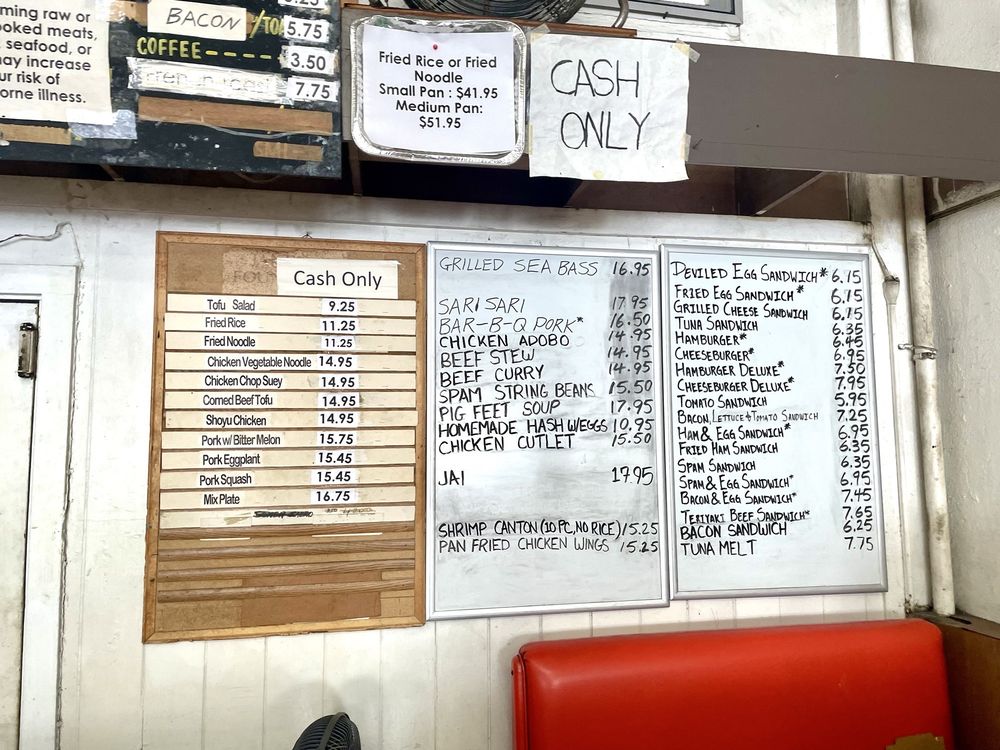 ming raw or
ooked meats,
seafood, or
nay increase
ur risk of
orne illness.
BACON
5.75
COFFEE----- 3.50
7.75
Fried Rice or Fried
Noodle
Small Pan : $41.95
Medium Pan:
$51.95
CASH
ONLY
Cash Only
Tofu Salad 9.25
Fried Rice 11.25
Fried Noodle 11.25
Chicken Vegetable Noodle 14.95
Chicken Chop Suey 14.95
Corned Beef Tofu 14.95
Shoyu Chicken 14.95
Pork w/ Bitter Melon 15.75
Pork Eggplant 15.45
Pork Squash 15.45
Mix Plate 16.75
GRILLED SEA BASS 16.95
SARI SARI 17.95
BAR-B-Q PORK* 16.50
CHICKEN ADOBO 14.95
BEEF STEW 14.95
BEEF CURRY 14.95
SPAM STRING BEANS 15.50
PIG FEET SOUP 17.95
HOMEMADE HASH W/EGGS 10.95
CHICKEN CUTLET 15.50
JAI 17.95
SHRIMP CANTON (10 PC, NO RICE) 15.25
PAN FRIED CHICKEN WINGS 15.25
DEVILED EGG SANDWICH* 6.15
FRIED EGG SANDWICH* 6.15
GRILLED CHEESE SANDWICH 6.15
TUNA SANDWICH 6.35
HAMBURGER* 6.45
CHEESEBURGER* 6.95
HAMBURGER DELUXE* 7.50
CHEESEBURGER DELUXE* 7.95
TOMATO SANDWICH 5.95
BACON, LETTUCE & TOMATO SANDWICH 7.25
HAM & EGG SANDWICH* 6.95
FRIED HAM SANDWICH 6.35
SPAM SANDWICH 6.35
SPAM & EGG SANDWICH* 6.95
BACON & EGG SANDWICH* 7.45
TERIYAKI BEEF SANDWICH* 7.65
BACON SANDWICH 6.25
TUNA MELT 7.75